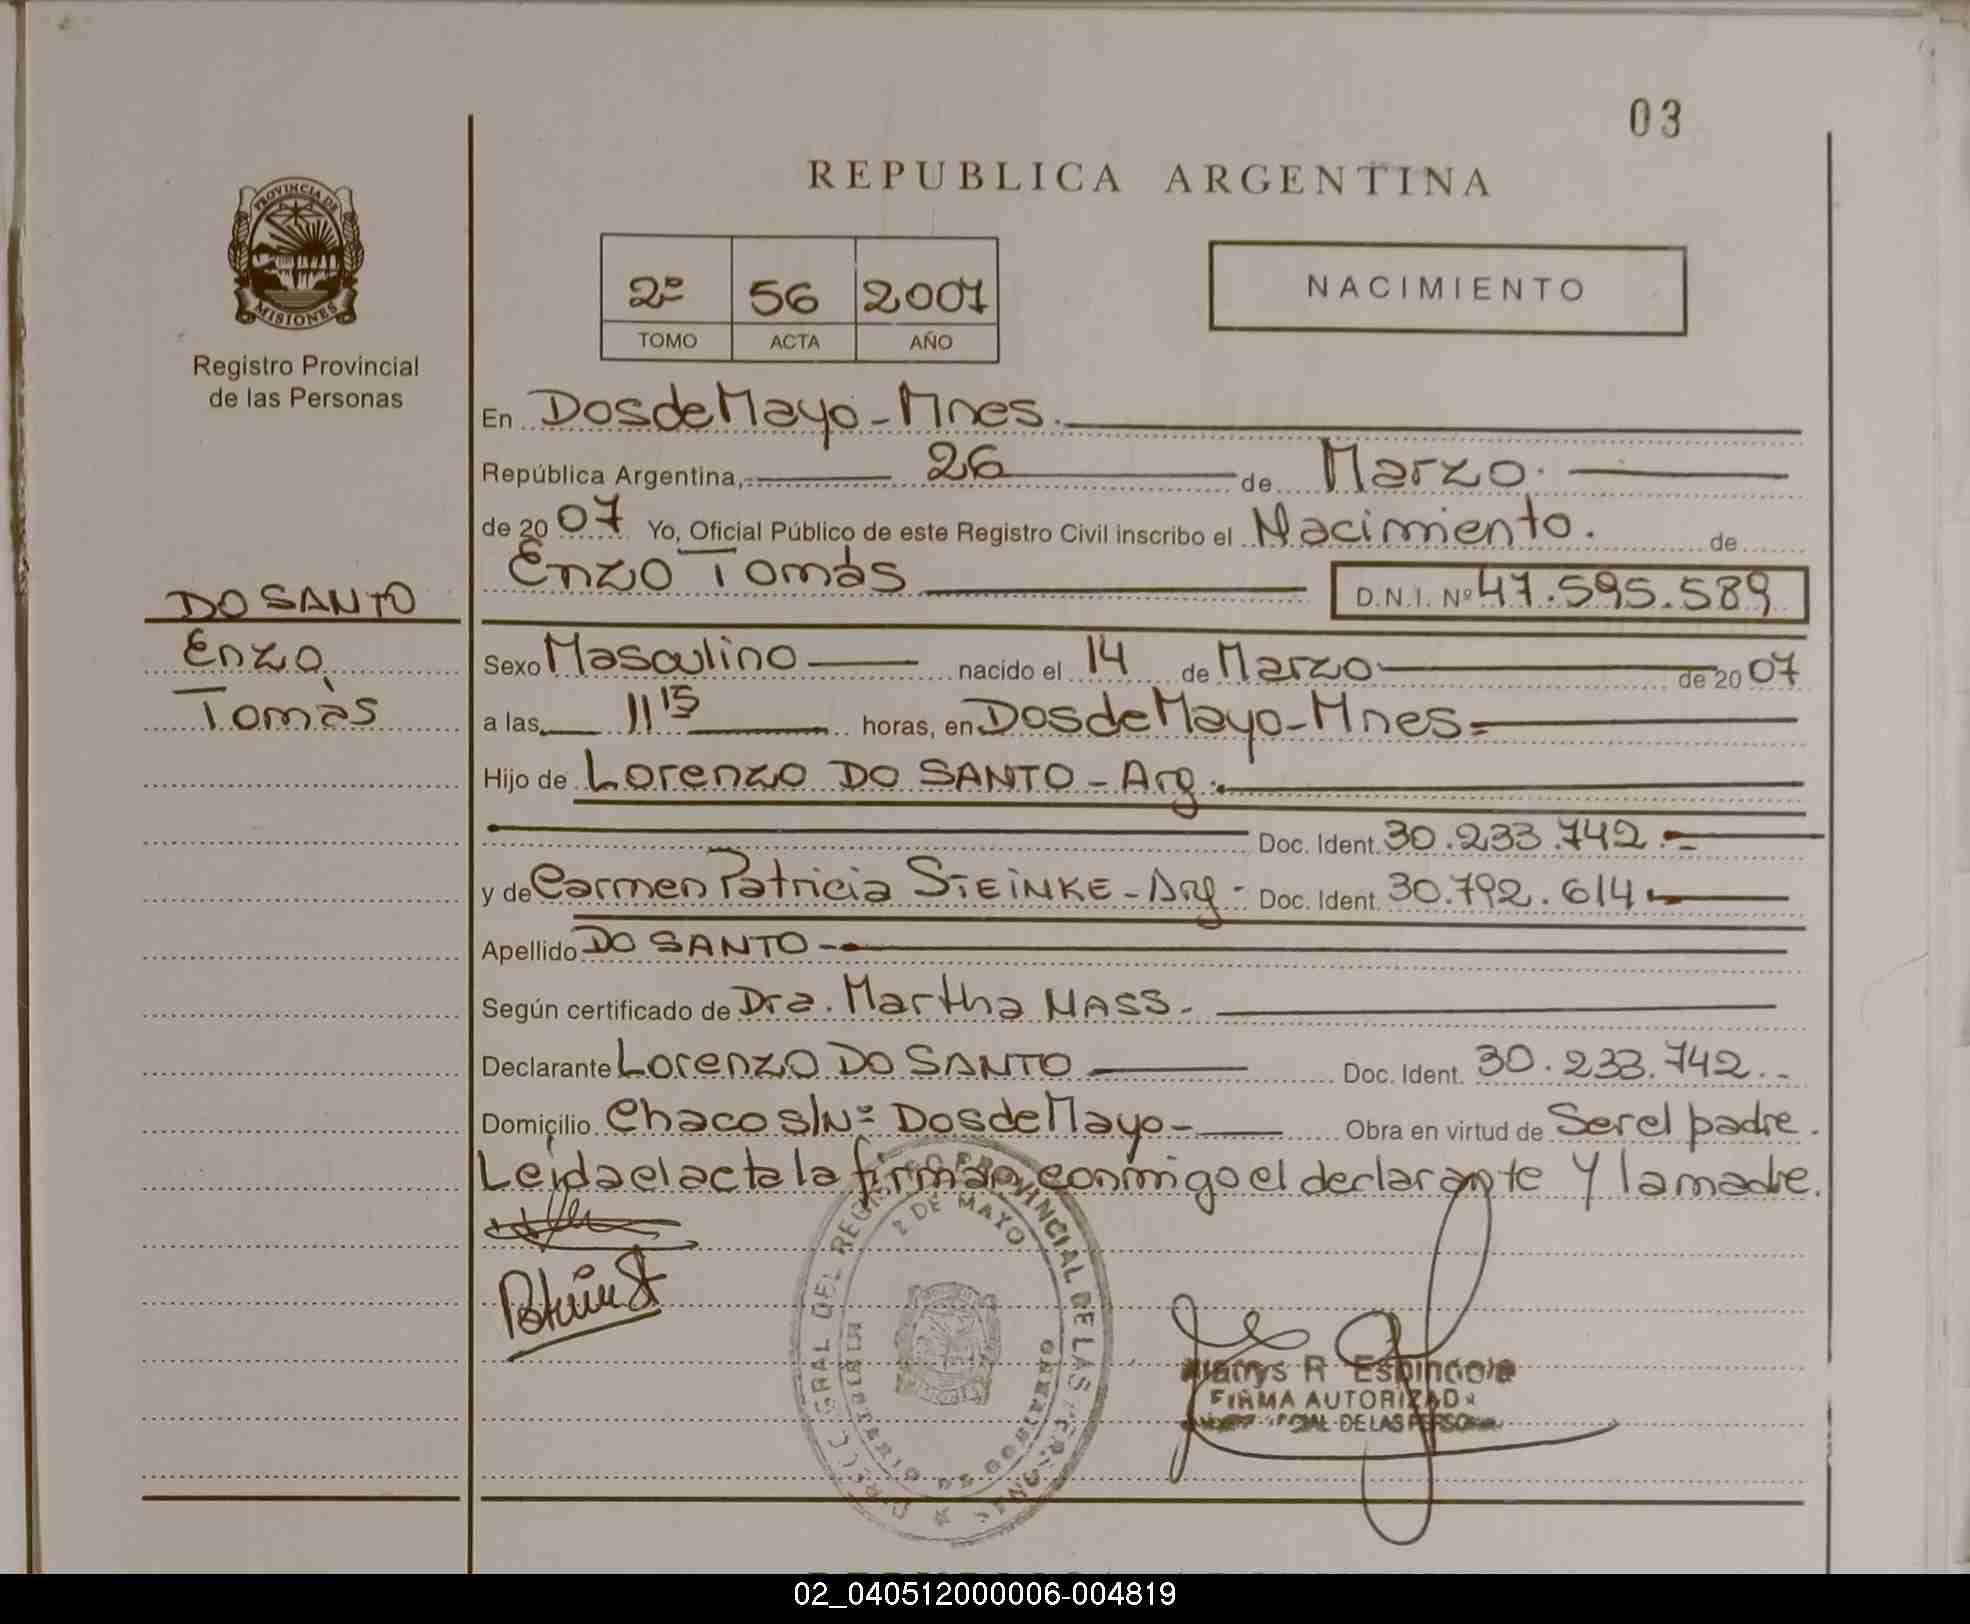 03
REPUBLICA ARGENTINA
PROVINCIA DE
MISIONES
Registro Provincial
de las Personas
2º 56 2007
TOMO ACTA AÑO
NACIMIENTO
En Dos de Mayo - Mnes.
República Argentina, 26 de Marzo.
de 2007 Yo, Oficial Público de este Registro Civil inscribo el Nacimiento. de
Enzo Tomás D.N.I. Nº 47.595.589
DO SANTO
Enzo
Tomàs
Sexo Masculino nacido el 14 de Marzo de 2007
a las 11 15 horas, en Dos de Mayo - Mnes
Hijo de Lorenzo DO SANTO - Arg.
Doc. Ident. 30.233.742.-
y de Carmen Patricia STEINKE - Arg - Doc. Ident. 30.792.614
Apellido DO SANTO -
Según certificado de Dra. Martha MASS.
Declarante Lorenzo DO SANTO Doc. Ident. 30.233.742.-
Domicilio Chaco S/Nº Dos de Mayo - Obra en virtud de Ser el padre.
Leida el acta la firman conmigo el declarante y la madre.
GRAL DEL REGISTRO PROVINCIAL DE LAS PERSONAS
2 DE MAYO
MINISTERIO DE GOBIERNO
R Espindola
FIRMA AUTORIZADA
DE LAS PERSONAS
02_040512000006-004819